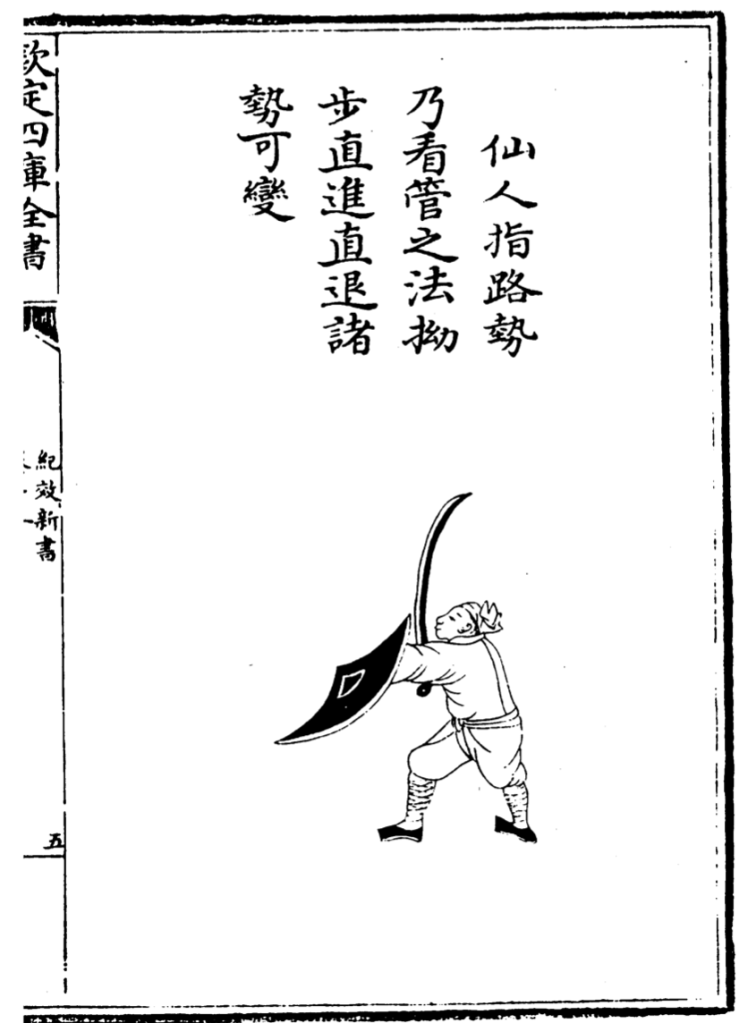 仙人指路勢
乃看管之法拗
步直進直退諸
勢可變
欽定四庫全書
紀效新書
五